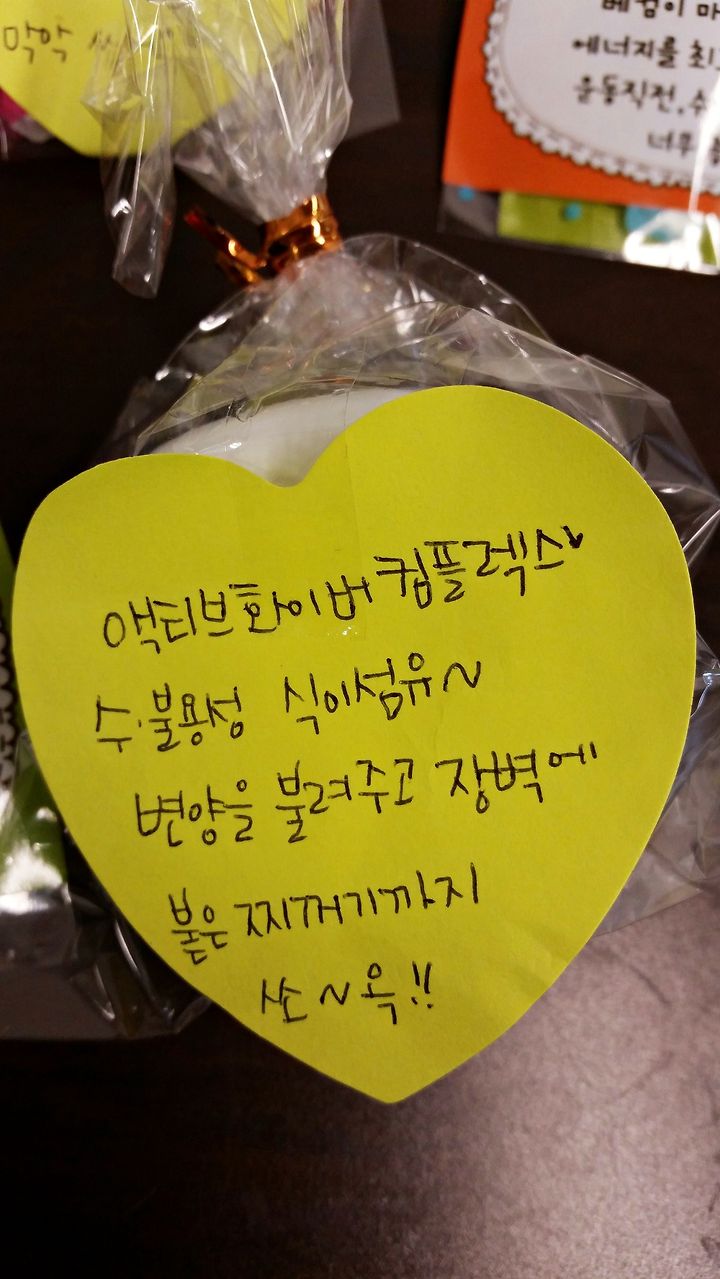 막막
베컴이 마
에너지를 최
운동직전, 수
너무
액티브화이버컴플렉스
수·불용성 식이섬유~
변양을 불려주고 장벽에
붙은 찌꺼기까지
쏘~옥!!